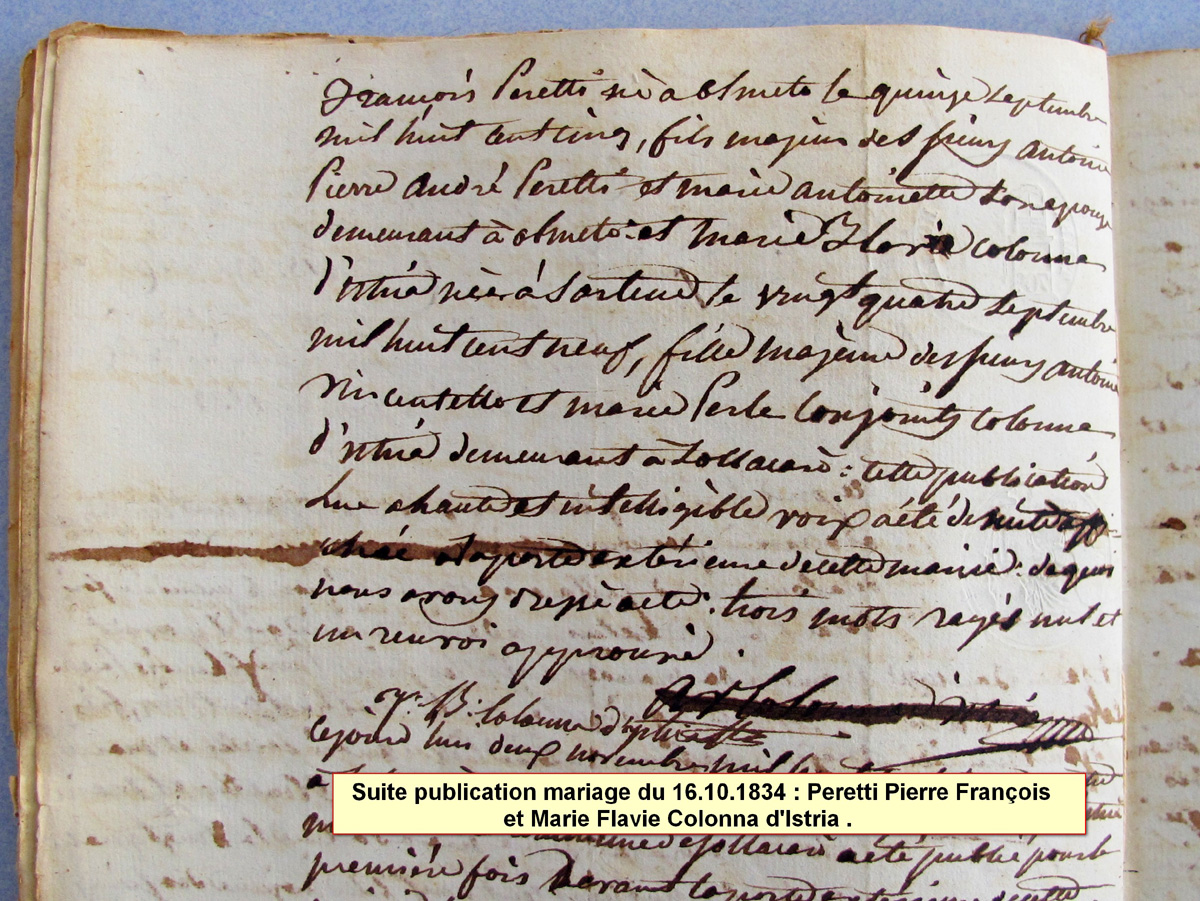 françois Peretti né à olmeto le quinze septembre
mil huit cent cinq, fils majeur des sieurs antoine
Pierre andré Peretti et marie antoinette son epouse
demeurant à olmeto: et marie colonna
d'istria née à Sartene le vingt quatre septembre
mil huit cent neuf, fille majeure des sieurs antoine
Vincentello et marie Perle conjoints colonna
d'istria demeurant à Sollacaro: cette publication
lue a haute et intelligible voix a été de suite affi-
chée a la porte exterieure de cette mairie: de quoi
nous avons dressé acte: trois mots rayés nul et
un renvoi approuvé.
Colonna d'istria
Colonna d'istria
cejourd'hui deux novembre mil
Suite publication mariage du 16.10.1834 : Peretti Pierre François
et Marie Flavie Colonna d'Istria .
de Sollacaro a été publié pour la
première fois devant la porte exterieure de cette